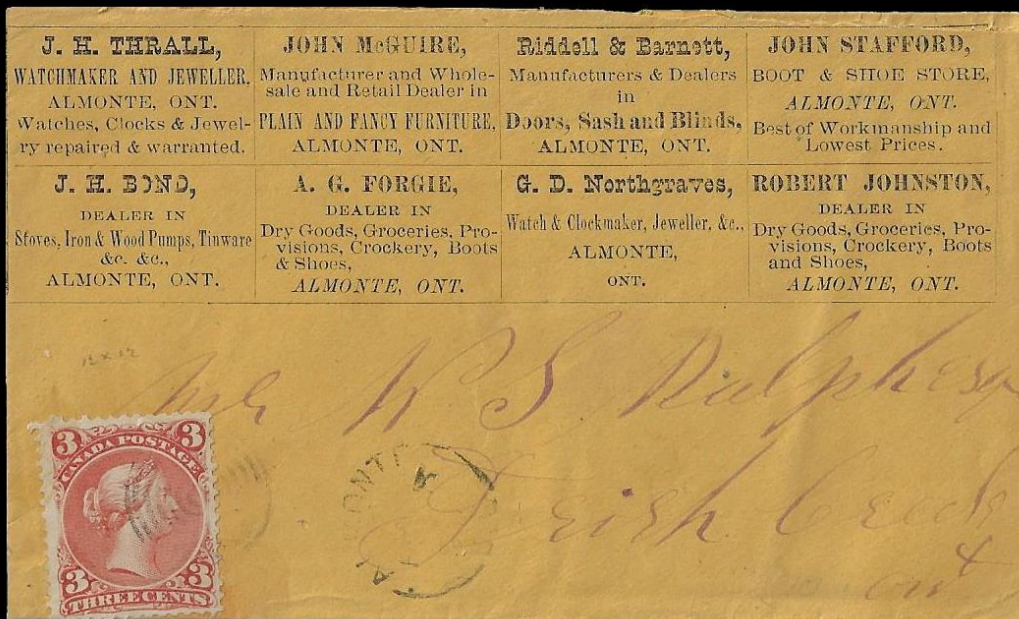 J. H. THRALL,
WATCHMAKER AND JEWELLER.
ALMONTE, ONT.
Watches, Clocks & Jewel-
ry repaired & warranted.
JOHN McGUIRE,
Manufacturer and Whole-
sale and Retail Dealer in
PLAIN AND FANCY FURNITURE,
ALMONTE, ONT.
Riddell & Barnett,
Manufacturers & Dealers
in
Doors, Sash and Blinds,
ALMONTE, ONT.
JOHN STAFFORD,
BOOT & SHOE STORE,
ALMONTE, ONT.
Best of Workmanship and
Lowest Prices.
J. H. BOND,
DEALER IN
Stoves, Iron & Wood Pumps, Tinware
&c. &c.,
ALMONTE, ONT.
A. G. FORGIE,
DEALER IN
Dry Goods, Groceries, Pro-
visions, Crockery, Boots
& Shoes,
ALMONTE, ONT.
G. D. Northgraves,
Watch & Clockmaker, Jeweller, &c.,
ALMONTE,
ONT.
ROBERT JOHNSTON,
DEALER IN
Dry Goods, Groceries, Pro-
visions, Crockery, Boots
and Shoes,
ALMONTE, ONT.
12 x 12
Mr S Ralph esq
Irish Creek
Ont
3 3
CANADA POSTAGE
3 3
THREE CENTS